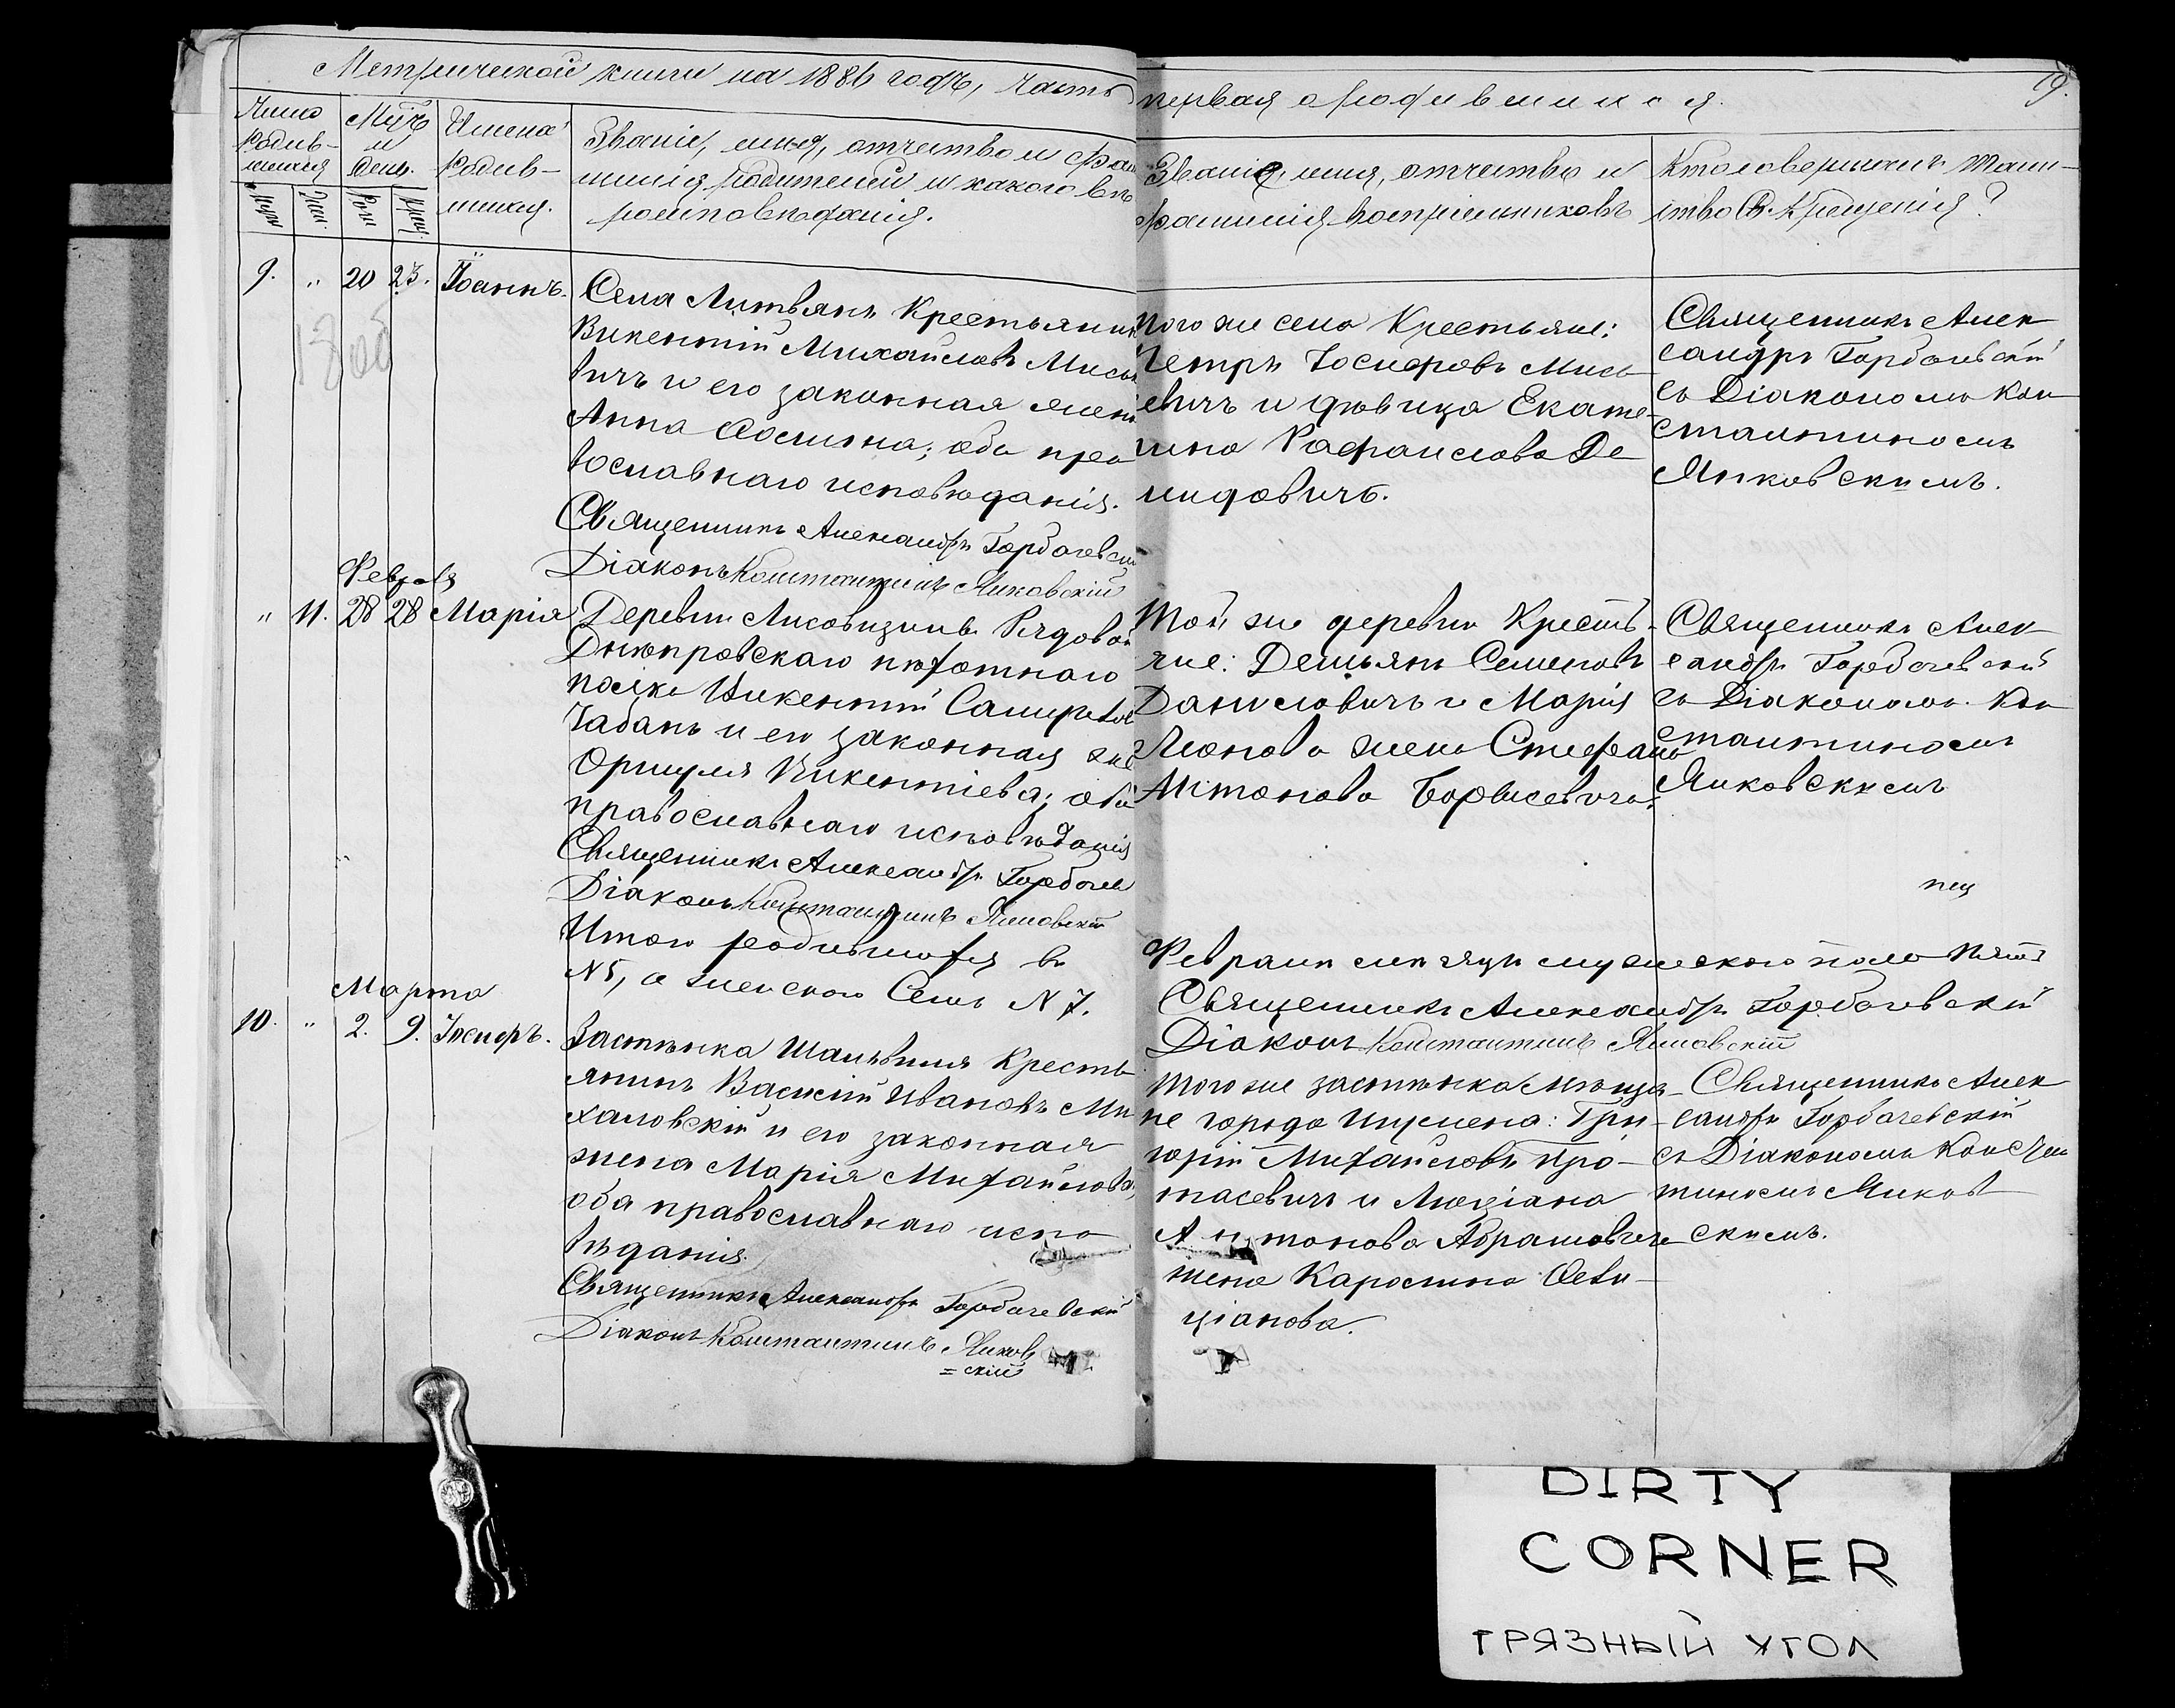 Метрической книги на 1886 годъ, часть первая о родившихся.
19.
Число родив-шихся
Мѣс. и день.
Имена родив-шихся.
Званіе, имя, отчество и фа-
милія родителей и какого вѣ-
роисповѣданія.
Званіе, имя, отчество и
фамилія воспріемниковъ
Кто совершалъ таин-
ство Св. Крещенія?
Муж. Жен. Рож. Крещ.
9. „ 20 23. Іоаннъ.
Села Литвянъ Крестьянинъ
Викентій Михайловъ Мись
вичъ и его законная жена
Анна Осипова; оба пра
вославнаго исповѣданія.
Священникъ Александръ Горбачевскій
Діаконъ Константинъ Янковскій
Того же села Крестьяне:
Петръ Іосифовъ Мись
евичъ и дѣвица Екате-
рина Рафаилова Де
мидовичъ.
Священникъ Алек
сандръ Горбачевскій
съ Діакономъ Кон
стантиномъ
Янковскимъ.
Февраля
„ 11. 28 28 Марія
Деревни Лисовщины Рядовой
Днѣпровскаго пѣхотнаго
полка Викентій
Чабанъ и его законная же
Викентіева; оба
православнаго исповѣданія
Священникъ Александръ Горбачев
Діаконъ Константинъ Янковскій
Той же деревни Кресть-
яне: Демьянъ Семеновъ
Даниловичъ и Марія
жена Стефана
Антонова Борисевича.
Священникъ Алек
сандръ Горбачевскій
съ Діакономъ Кон
стантиномъ
Янковскимъ
Итого родившихся въ Февралѣ мѣсяцѣ мужескаго пола пять
N 5, а женскаго Семь N 7.
Священникъ Александръ Горбачевскій
Діаконъ Константинъ Янковскій
Марта
10. „ 2. 9. Іосифъ.
Застѣнка Кресть
янинъ Василій Ивановъ Ми
халовскій и его законная
жена Марія Михайлова,
оба православнаго испо
вѣданія.
Священникъ Александръ Горбачевскій
Діаконъ Константинъ Янков
=скій
Того же застѣнка мѣща-
не города Игумена: Гри-
горій Михайловъ Про-
тасевичъ и Люціана
Антонова Абрамовича
жена Каролина Фели-
ціанова.
Священникъ Алек
сандръ Горбачевскій
съ Діакономъ Констан
тиномъ Янков
скимъ.
DIRTY
CORNER
ГРЯЗНЫЙ УГОЛ